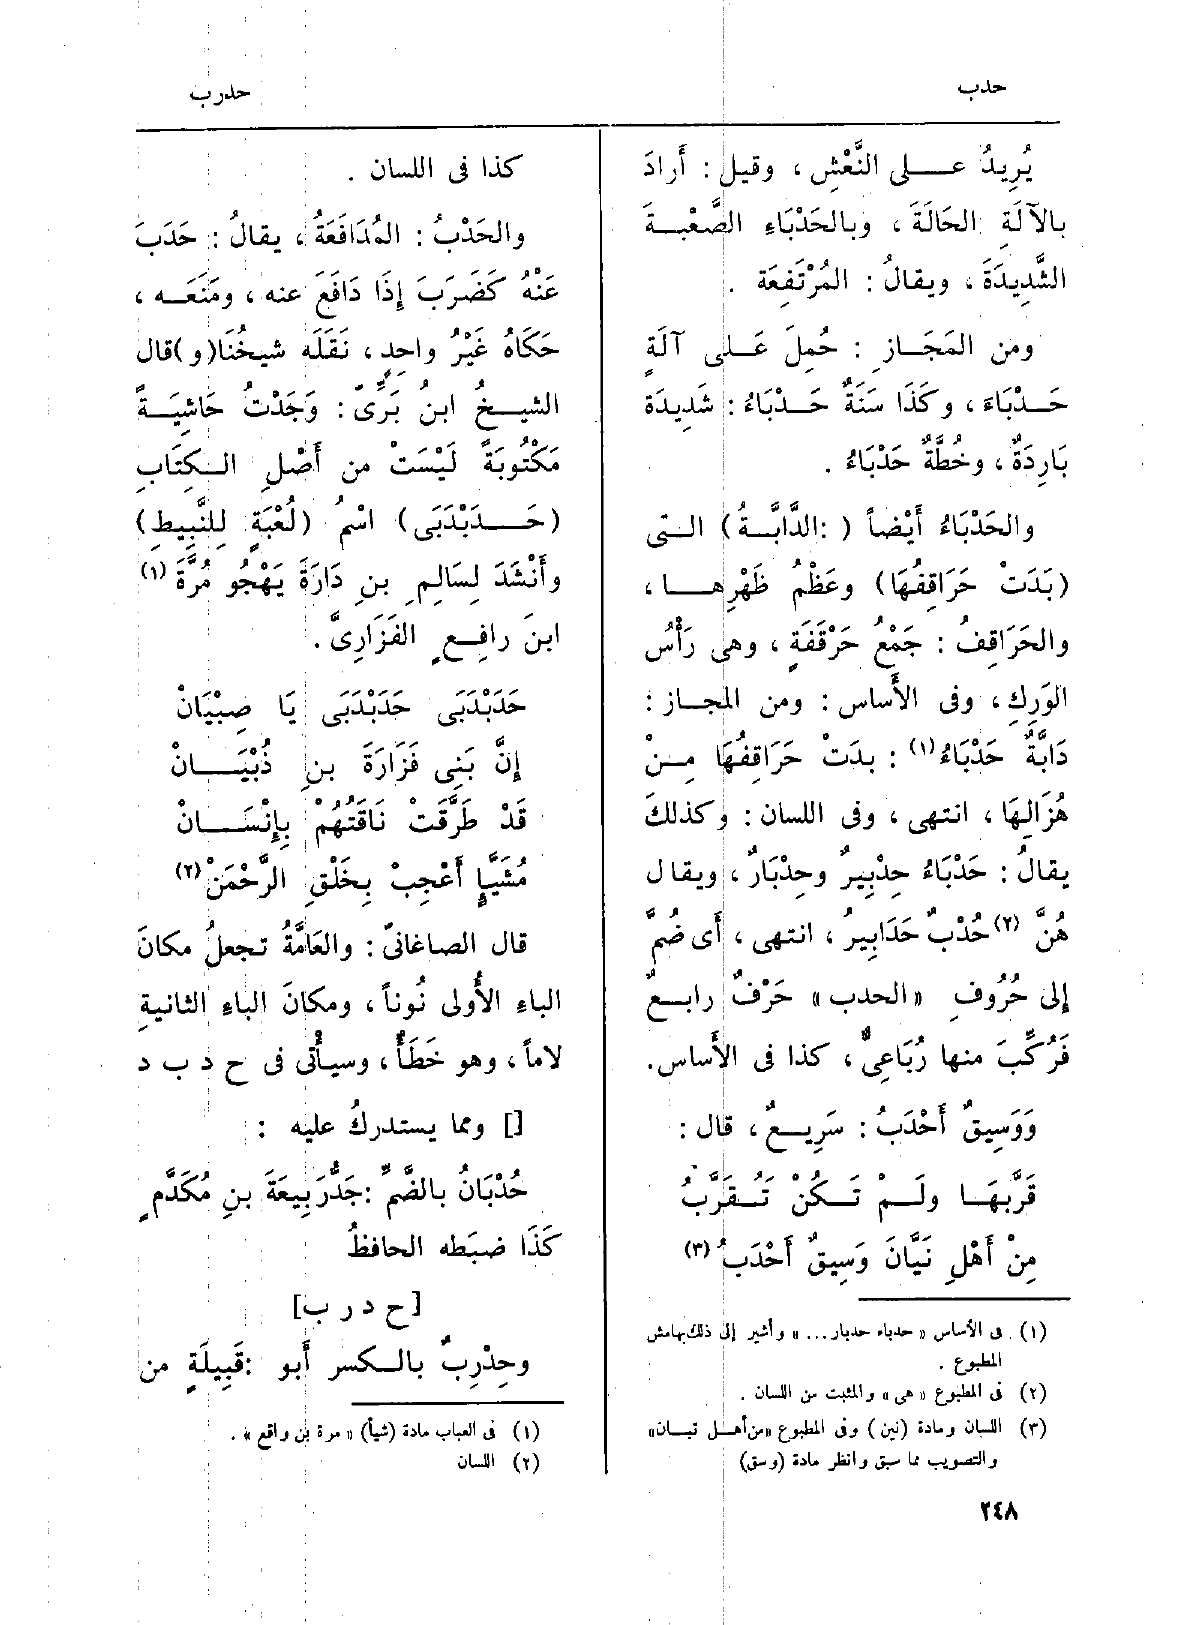 حدب
حدرب
يُرِيدُ عـــلى النَّعْشِ ، وقيل : أَرادَ
بالآلَةِ الحَالَةَ ، وبالحَدْبَاءِ الصَّعْبــةَ
الشَّدِيدَةَ ، ويقالُ : المُرْتَفِعَة .
ومن المَجَـاز : حُمِلَ عَـلى آلَةٍ
حَــدْبَاءَ ، وكَذَا سَنَةٌ حَــدْبَاءُ : شَدِيدَة
بَارِدَةٌ ، وخُطَّةٌ حَدْبَاءُ .
والحَدْبَاءُ أَيْضاً ( :الدَّابَّــةُ ) الـتى
(بَدَتْ حَرَاقِفُهَا) وعَظْمُ ظَهْرِهــا ،
والحَرَاقِفُ : جَمْعُ حَرْقَفَةٍ ، وهى رَأْسُ
الوَرِكِ ، وفى الأَساس : ومن المجاز :
دَابَّةٌ حَدْبَاءُ (١) : بدَتْ حَرَاقِفُهَا مِــنْ
هُزَالِهَا ، انتهى ، وفى اللسان : وكذلكَ
يقالُ : حَدْبَاءُ حِدْبِيرٌ وحِدْبَارٌ ، ويقال
هُنَّ (٢) حُدْبٌ حَدَابِيرُ ، انتهى ، أَى ضُمَّ
إلى حُرُوفِ «الحدب» حَرْفٌ رابعٌ
فَرُكِّبَ منها رُبَاعِىٌّ ، كذا فى الأَساس.
وَوَسِيقٌ أَحْدَبُ : سَرِيــعٌ ، قال :
قَرَّبَهَــا ولَــمْ تَـكُنْ تَـقَرَّبُ
مِنْ أَهْلِ نَيَّانَ وَسِيقٌ أَحْدَبُ (٣)
(١) فى الأساس «حدباء حدبار...» وأشير إلى ذلك بهامش
المطبوع .
(٢) فى المطبوع «هى» والمثبت من اللسان .
(٣) اللسان ومادة (نين) وفى المطبوع «من أهـل تبـان»
والتصويب مما سبق وانظر مادة (وسق)
كذا فى اللسان .
والحَدْبُ : المُدَافَعَةُ ، يقالُ : حَدَبَ
عَنْهُ كَضَرَبَ إِذَا دَافَعَ عنه ، ومَنَعَــه ،
حَكَاهُ غَيْرُ واحِدٍ ، نَقَلَه شيخُنَا (و) قال
الشيــخُ ابنُ بَرِّىّ : وَجَدْتُ حَاشِيَــةً
مَكْتُوبَةً لَيْسَتْ من أَصْلِ الـكِتَابِ
(حَــدَبْدَبَى) اسْمُ (لُعْبَةٍ لِلنَّبِيطِ)
وأَنْشَدَ لِسَالِمِ بنِ دَارَةَ يَهْجُو مُرَّةَ (١)
ابنَ رافِــعٍ الفَزَارِىَّ .
حَدَبْدَبَى حَدَبْدَبَى يَا صِبْيَانْ
إنَّ بَنِى فَزَارَةَ بنِ ذُبْيَــانْ
قَدْ طَرَّقَتْ نَاقَتُهُمْ بِإِنْسَــانْ
مُشَيَّإٍ أَعْجِبْ بِخَلْقِ الرَّحْمَنْ (٢)
قال الصاغانىّ : والعَامَّةُ تجعلُ مكانَ
الباءِ الأُولى نُوناً ، ومكانَ الباءِ الثانيةِ
لاماً ، وهو خَطَأٌ ، وسيأْتى فى ح د ب د
[] ومما يستدركُ عليه :
حُدْبَانُ بالضَّمِّ :جَدُّ رَبِيعَةَ بنِ مُكَدَّمٍ
كَذَا ضبَطه الحافظُ
[ح د ر ب]
وحِدْرِبٌ بالـكسر أَبو :قَبِيلَةٍ من
(١) فى العباب مادة (شيأ) «مرة بن واقع» .
(٢) اللسان
٢٤٨